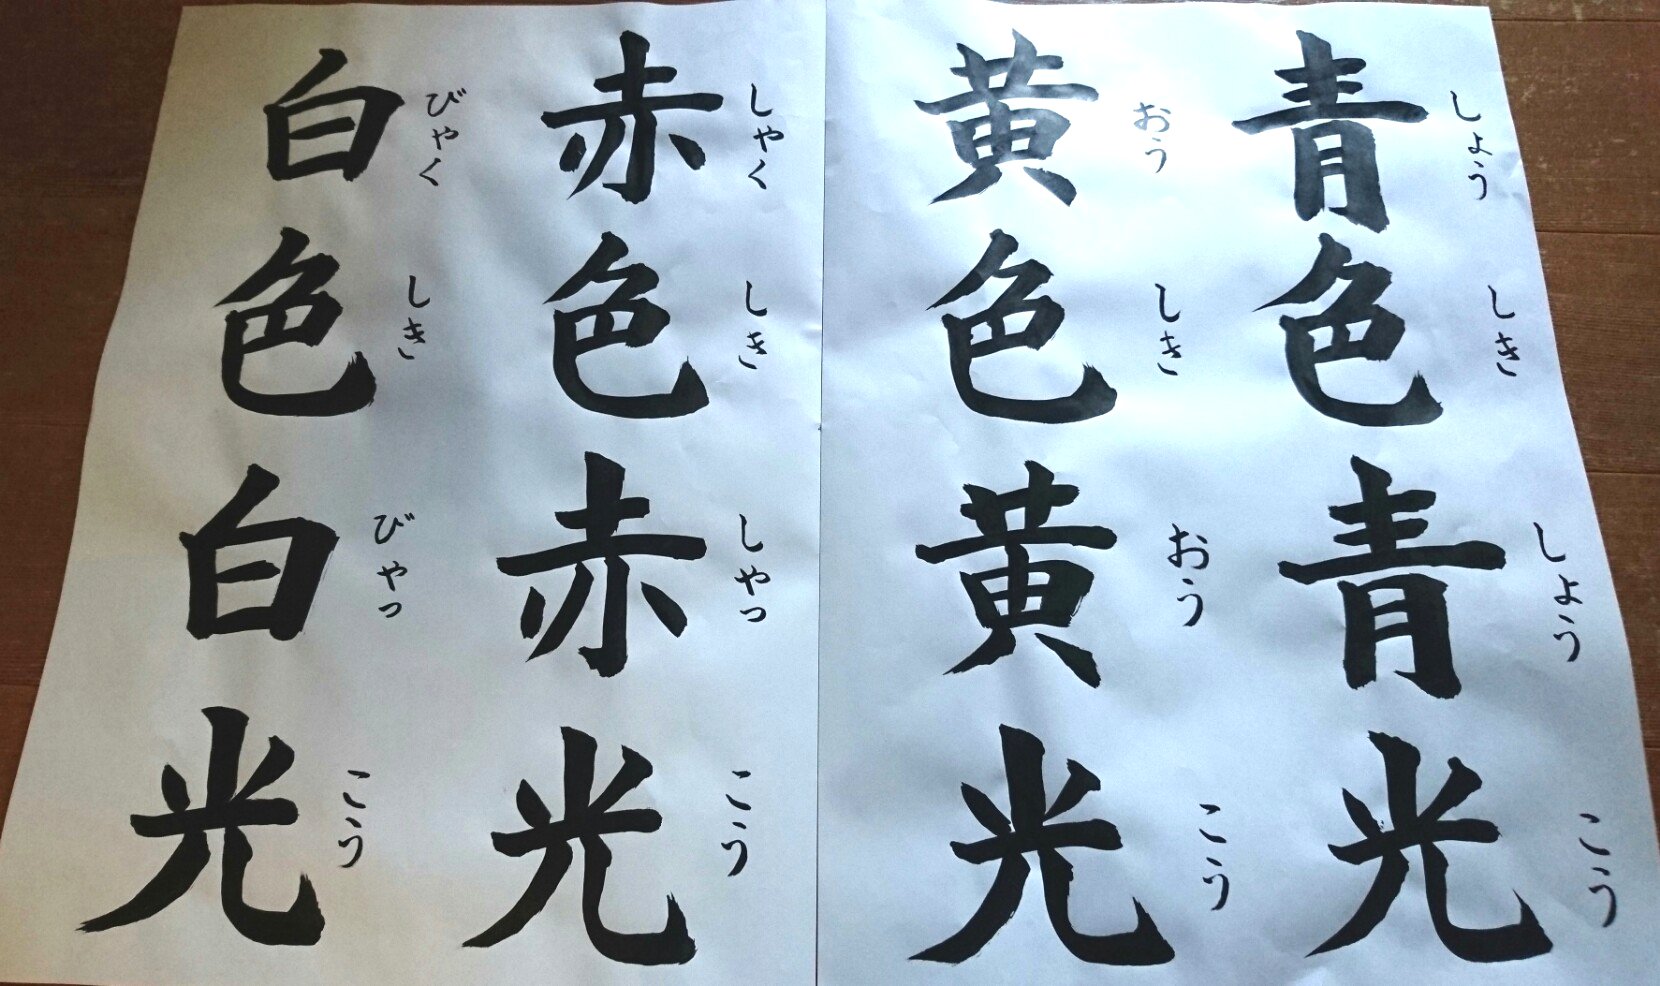 青色青光
しょうしきしょうこう
黄色黄光
おうしきおうこう
赤色赤光
しゃくしきしゃっこう
白色白光
びゃくしきびゃっこう